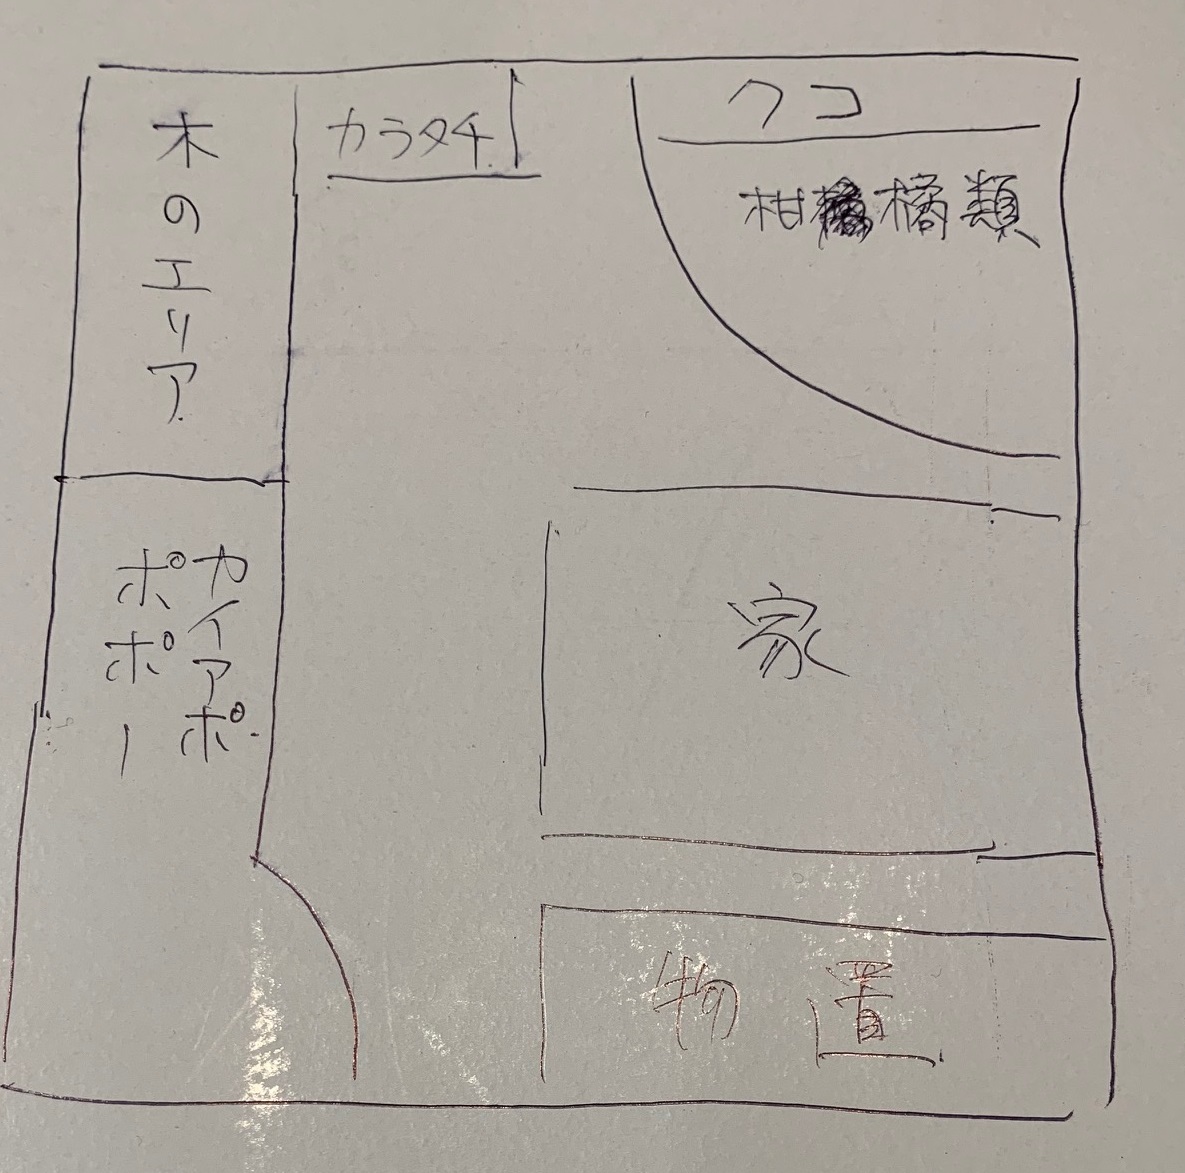 木のエリア
カラタチ
クコ
柑橘類
カイアポ
ポポー
家
物置